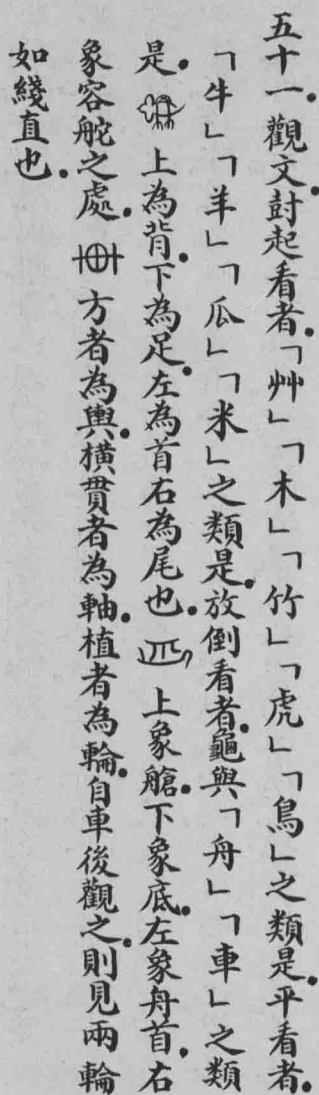 五十一.觀文.封起看者.「艸」「木」「竹」「虎」「鳥」之類是.平看者.
「牛」「羊」「瓜」「米」之類是.放倒看者.龜與「舟」「車」之類
是.上為背.下為足.左為首右為尾也.上象艙.下象底.左象舟首.右
象容舵之處.方者為輿.橫貫者為軸.植者為輪.自車後觀之.則見兩輪
如綫直也.